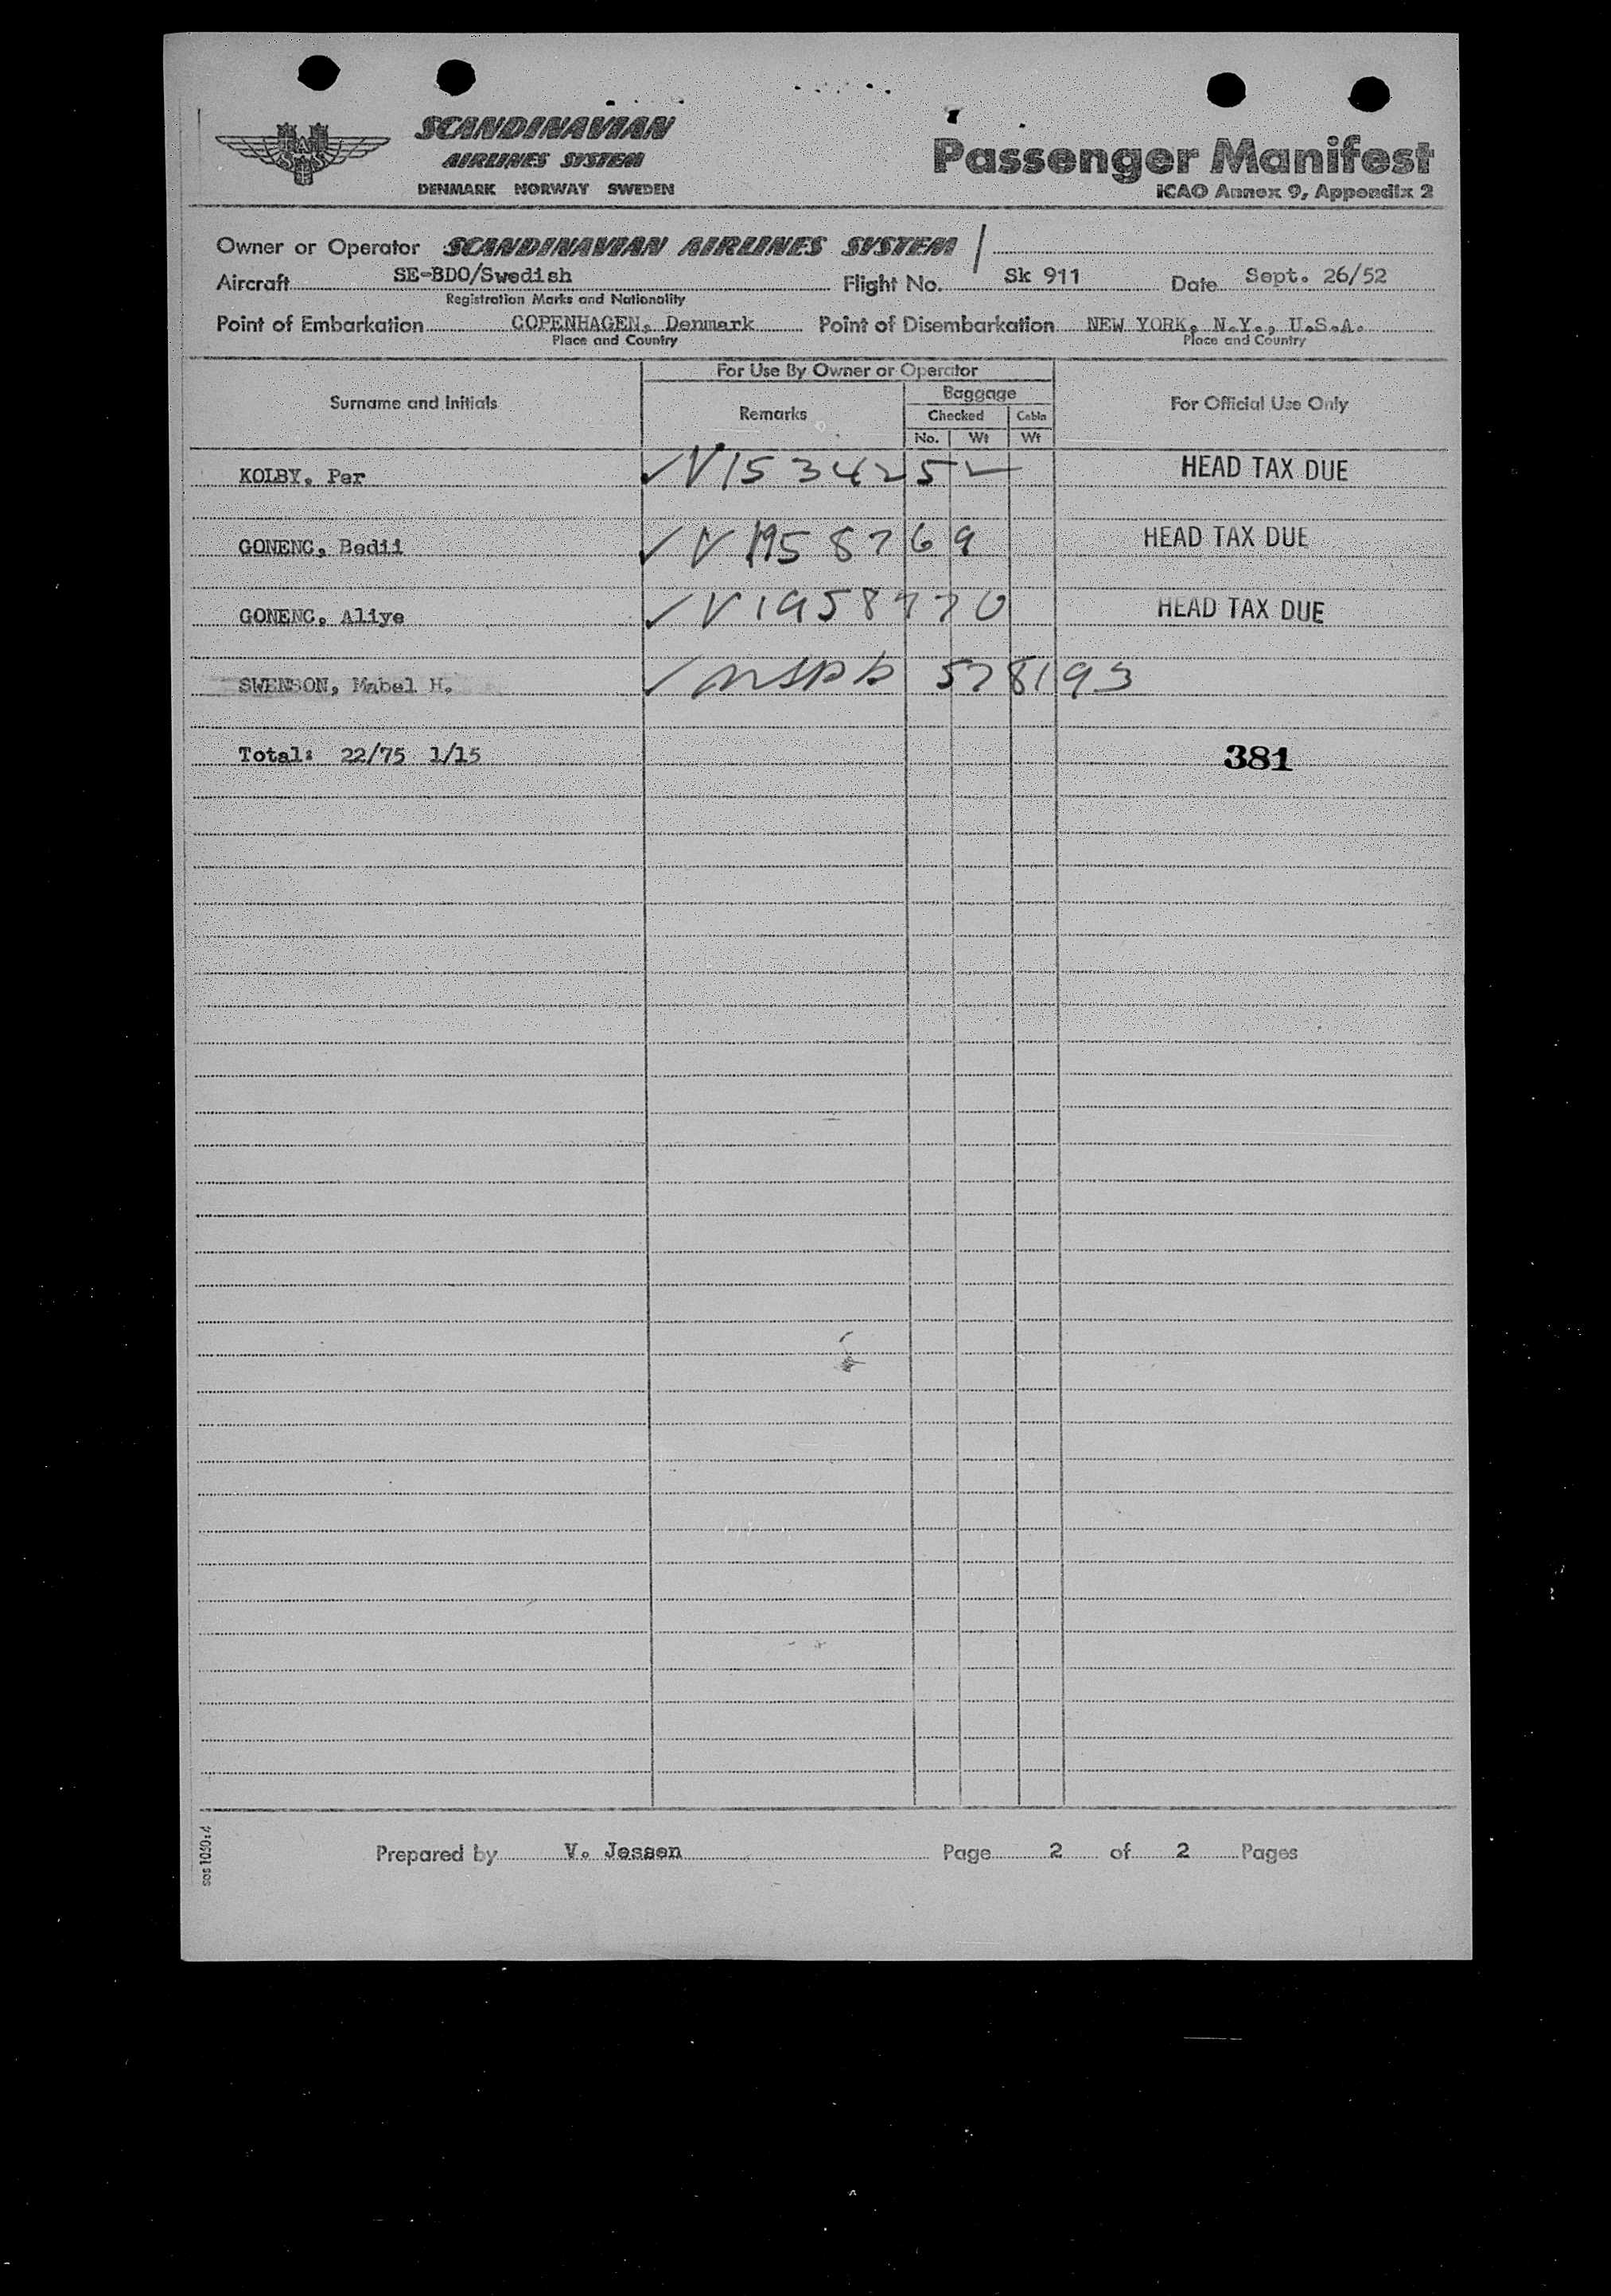 SCANDINAVIAN
AIRLINES SYSTEM
DENMARK NORWAY SWEDEN
SAS
Passenger Manifest
ICAO Annex 9, Appendix 2
Owner or Operator SCANDINAVIAN AIRLINES SYSTEM /
Aircraft SE-BDO/Swedish Flight No. Sk 911 Date Sept. 26/52
Registration Marks and Nationality
Point of Embarkation COPENHAGEN, Denmark Point of Disembarkation NEW YORK, N.Y., U.S.A.
Place and Country Place and Country
For Use By Owner or Operator
Surname and Initials Remarks Baggage For Official Use Only
Checked Cabin
No. Wt Wt
KOLBY, Per ✓ V1534252 HEAD TAX DUE
GONENC, Bedii ✓ V1958769 HEAD TAX DUE
GONENC, Aliye ✓ V1958770 HEAD TAX DUE
SWENSON, Mabel H. ✓ 578193
Total: 22/75 1/15 381
Prepared by V. Jessen Page 2 of 2 Pages
sas 1030:4